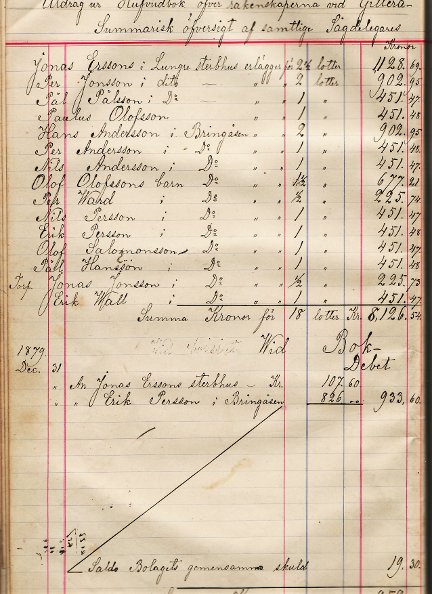 Utdrag ur Hufvudbok öfver räkenskaperna vid Gitterå
Summarisk öfversigt af samtlige Sågdelegares
Kronor
Jonas Erssons i Lungre sterbhus erlägger för 2½ lotter 1128. 69.
Per Jonsson i dito — " " 2 lotter 902. 95
Pål Pålsson i Do " " 1 " 451. 47
Paulus Olofsson " " 1 " 451. 48
Hans Andersson i Bringåsen " " 2 " 902. 95
Per Andersson i Do " " 1 " 451. 48
Nils Andersson i Do " " 1 " 451. 47
Olof Olofssons barn Do " " 1½ " 677. 21
Per Ward i Do " " ½ " 225. 74
Nils Persson i Do " " 1 " 451. 47
Erik Persson i Do " " 1 " 451. 48
Olof Salomonsson Do " " 1 " 451. 47
Påhl Hansson i Do " " 1 " 451. 48
Torp Jonas Jonsson i Do " " ½ " 225. 73
Erik Wall i Do " " 1 " 451. 47
Summa Kronor för 18 lotter Kr. 8,126. 54
1879 Wid Bok-
Debet
Dec. 31
" An Jonas Erssons sterbhus — Kr. 107. 60
" " Erik Persson i Bringåsen 826 " 933. 60.
Saldo Bolagets gemensamma skuld 19. 30.